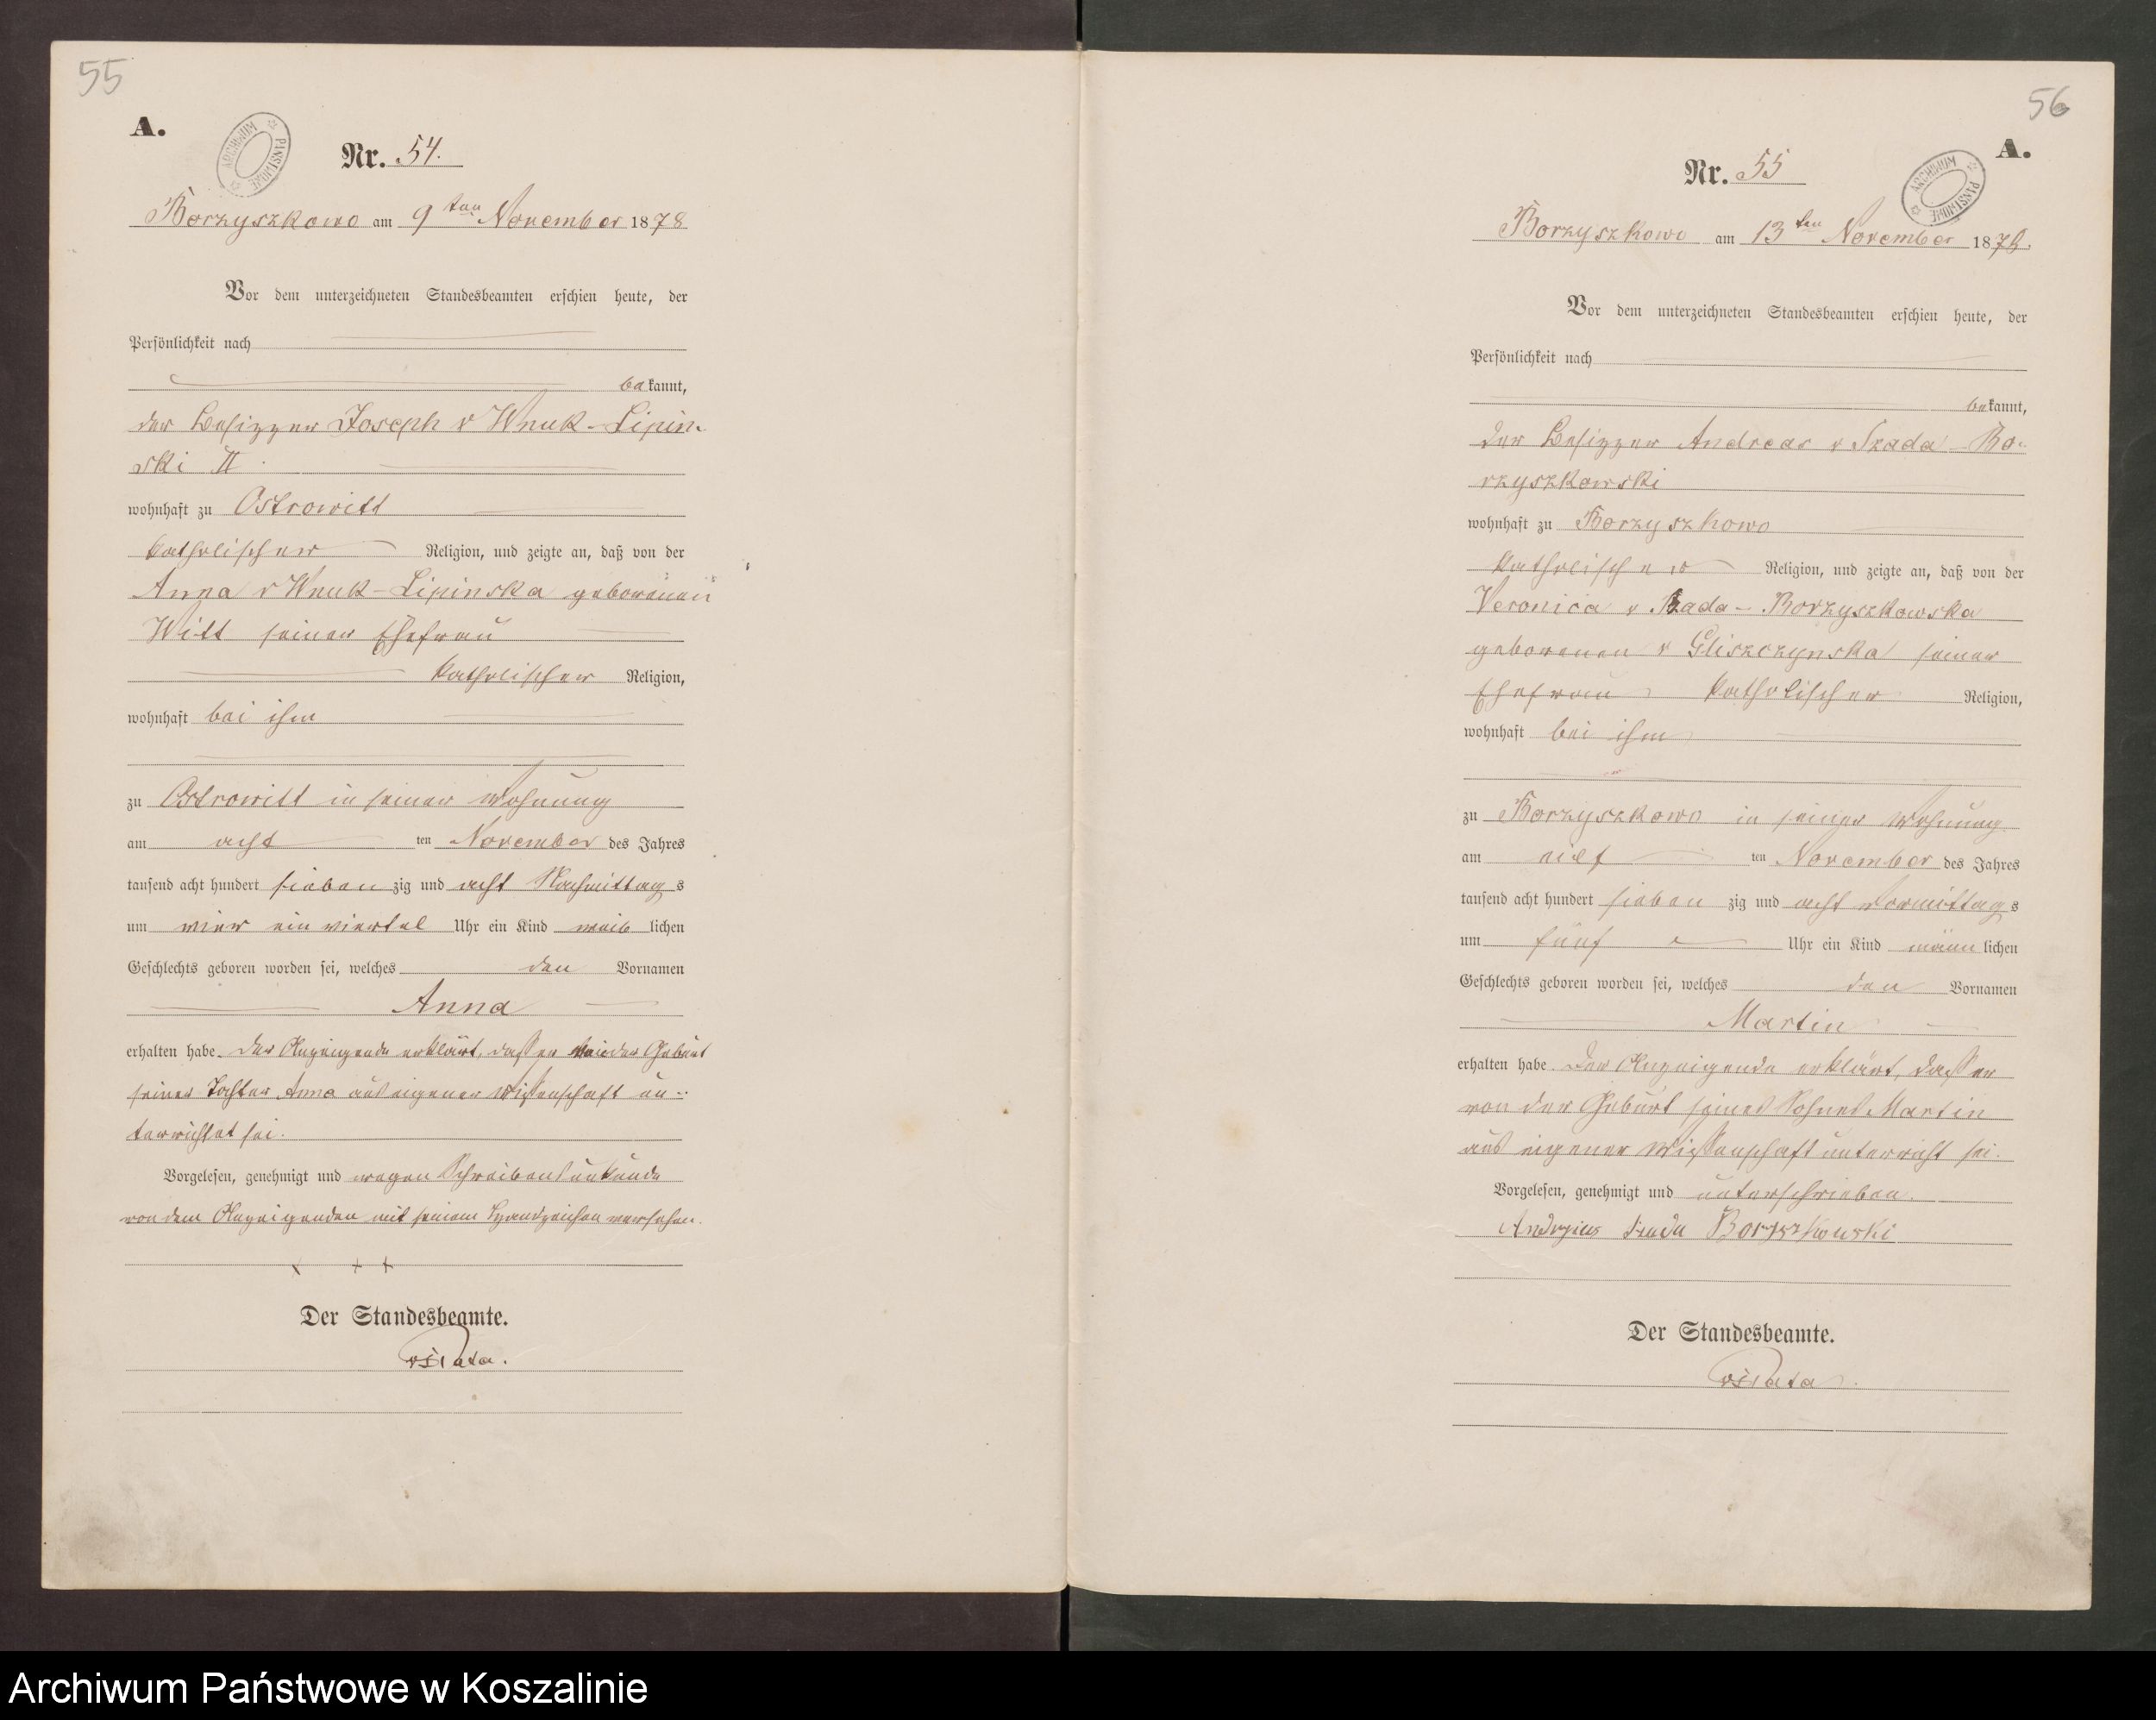 55
A.
ARCHIWUM PAŃSTWOWE
Nr. 54.
Borzyszkowo am 9ten November 1878
Vor dem unterzeichneten Standesbeamten erschien heute, der
Persönlichkeit nach
bekannt,
der Besitzer Joseph v Wnuk-Lipin-
ski II.
wohnhaft zu Ostrowitt
katholischer Religion, und zeigte an, daß von der
Anna v Wnuk-Lipinska geborenen
Witt seiner Ehefrau
katholischer Religion,
wohnhaft bei ihm
zu Ostrowitt in seiner Wohnung
am acht ten November des Jahres
tausend acht hundert sieben zig und acht Nachmittags
um vier ein viertel Uhr ein Kind weib lichen
Geschlechts geboren worden sei, welches den Vornamen
Anna
erhalten habe. Der Anzeigende erklärt, dass er von der Geburt
seiner Tochter Anna aus eigener Wissenschaft un-
terrichtet sei.
Vorgelesen, genehmigt und wegen Schreibensunkunde
von dem Anzeigenden mit seinem Handzeichen versehen.
x + +
Der Standesbeamte.
56
A.
ARCHIWUM PAŃSTWOWE
Nr. 55
Borzyszkowo am 13ten November 1878.
Vor dem unterzeichneten Standesbeamten erschien heute, der
Persönlichkeit nach
bekannt,
der Besitzer Andreas v Szada-Bo-
rzyszkowski
wohnhaft zu Borzyszkowo
katholischer Religion, und zeigte an, daß von der
Veronica v Szada-Borzyszkowska
geborenen v Gliszczynska seiner
Ehefrau katholischer Religion,
wohnhaft bei ihm
zu Borzyszkowo in seiner Wohnung
am eilf ten November des Jahres
tausend acht hundert sieben zig und acht Vormittags
um fünf Uhr ein Kind männ lichen
Geschlechts geboren worden sei, welches den Vornamen
Martin
erhalten habe. Der Anzeigende erklärt, dass er
von der Geburt seines Sohnes Martin
aus eigener Wissenschaft unterricht sei.
Vorgelesen, genehmigt und unterschrieben.
Der Standesbeamte.
Archiwum Państwowe w Koszalinie